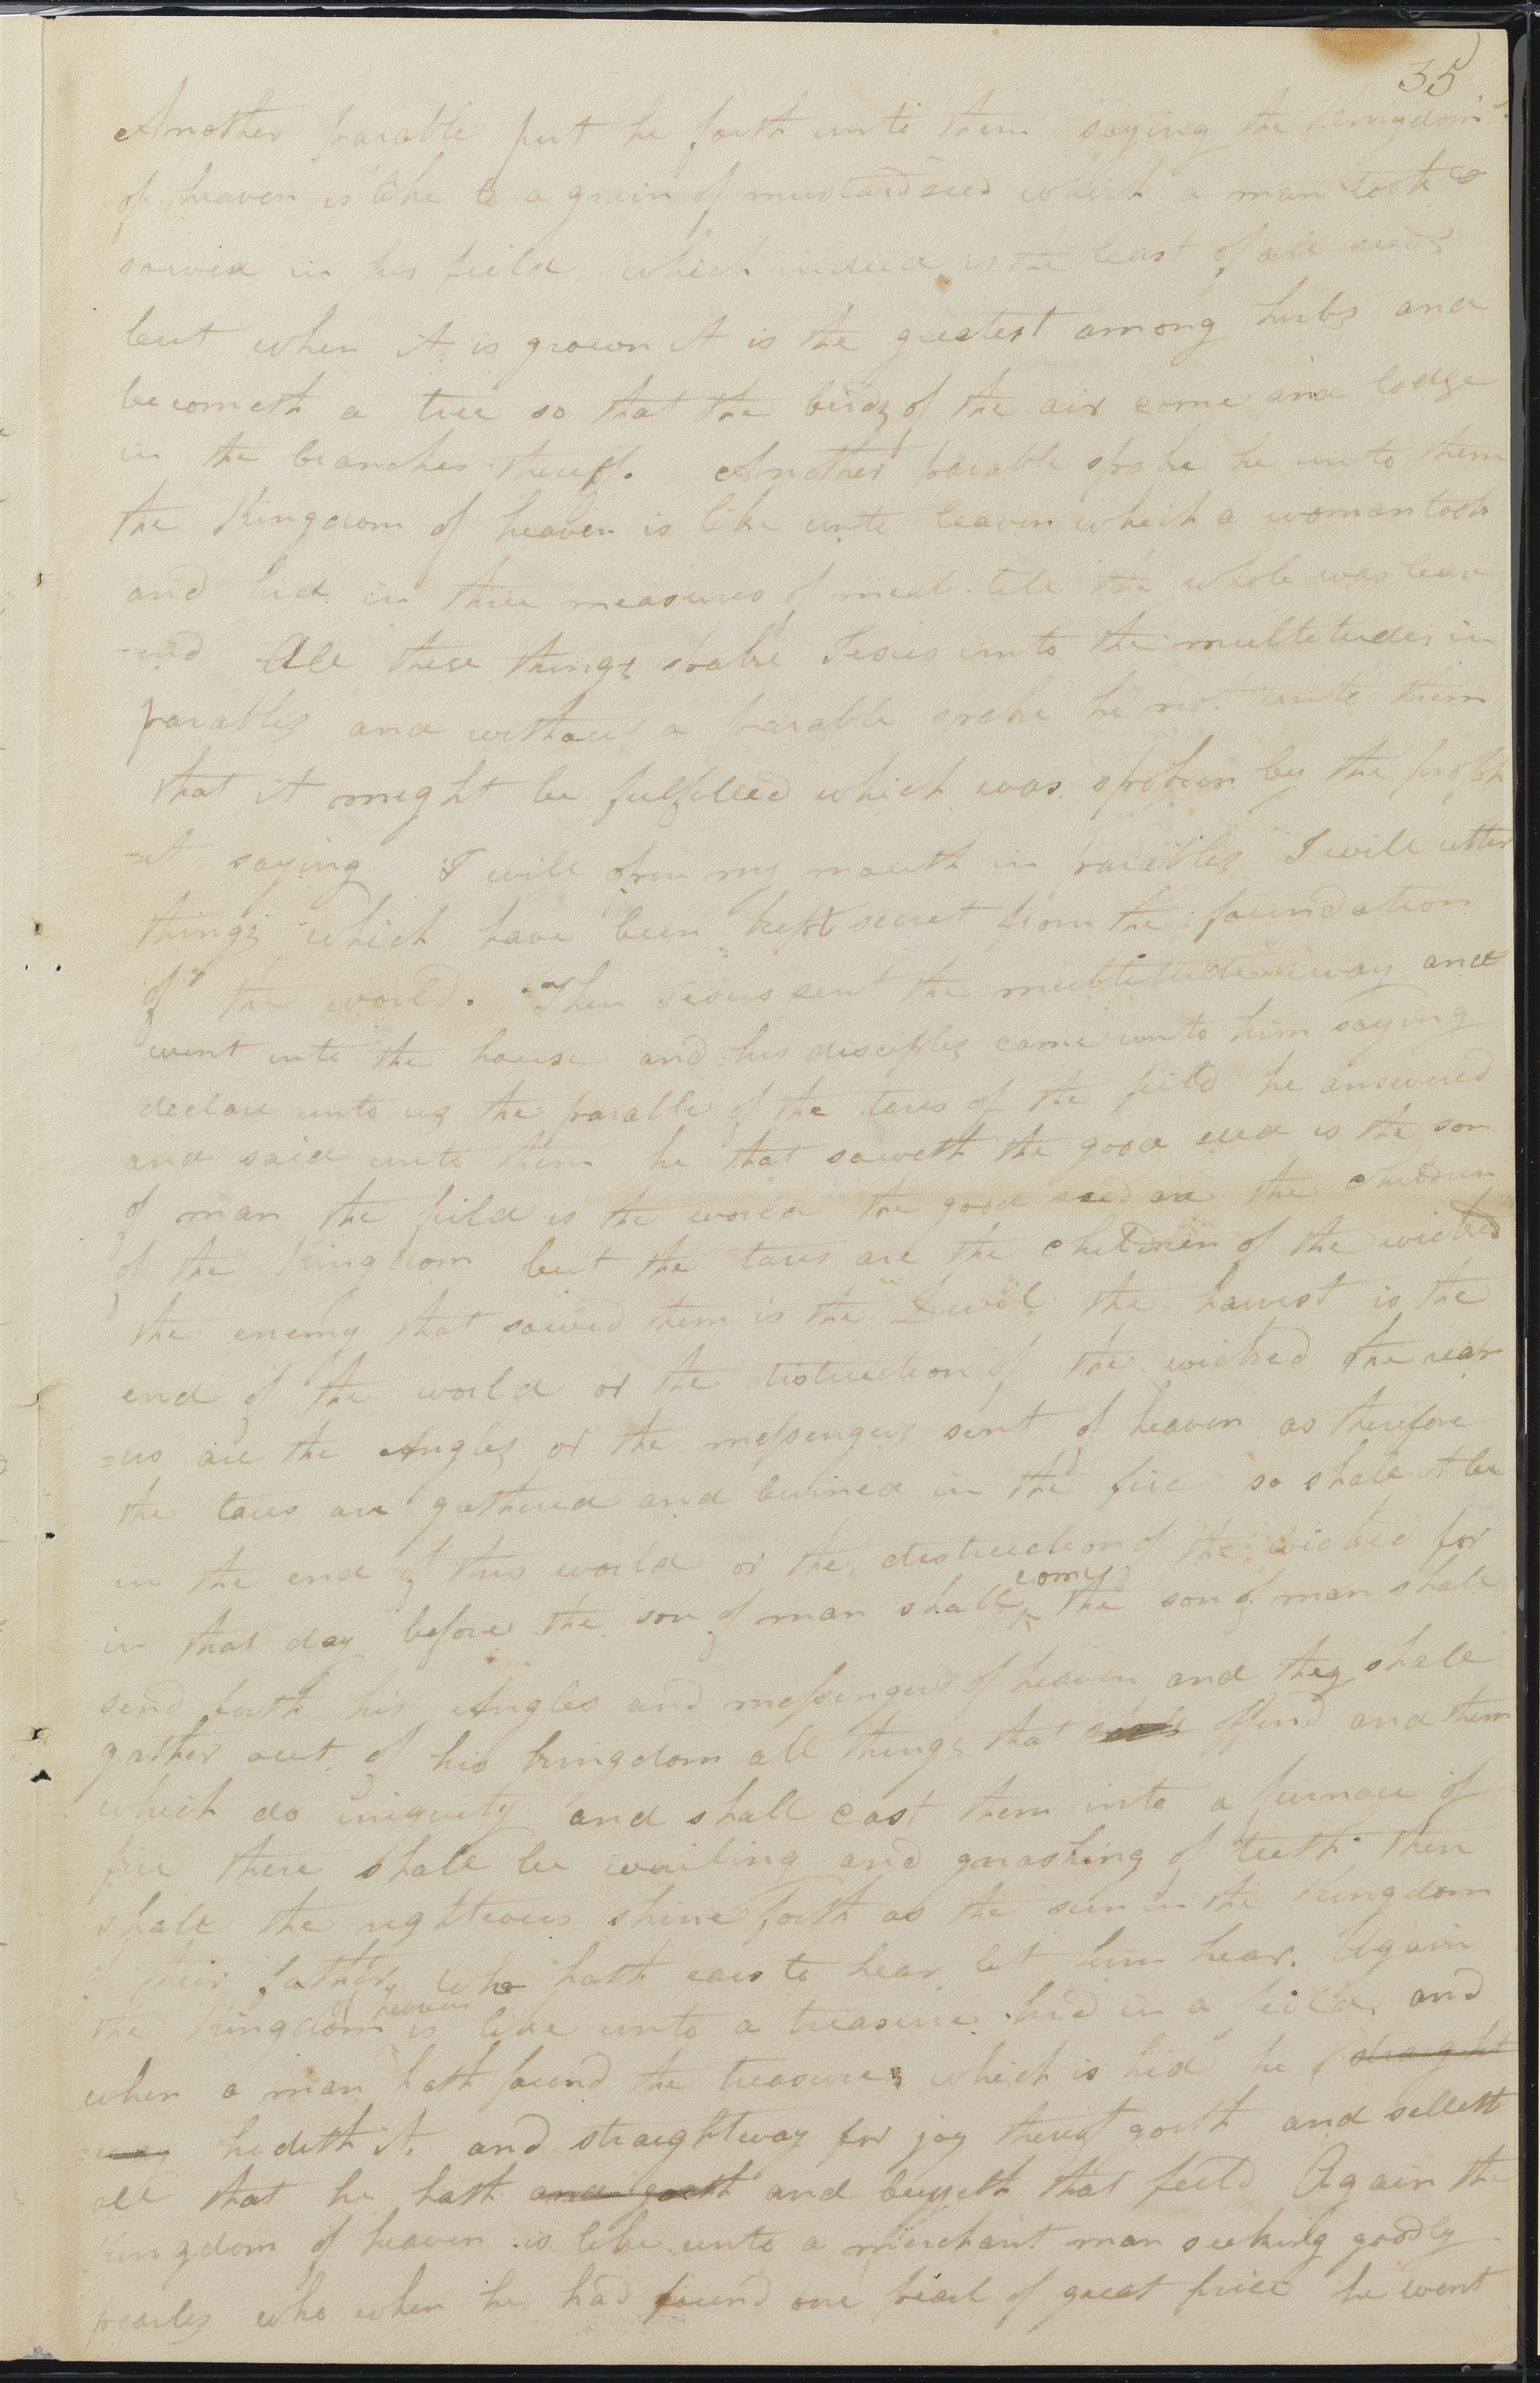 35
Another parable put he forth unto them saying the Kingdom
of heaven is like to a grain of mustard seed which a man took &
sowed in his field which indeed is the least of all seeds
but when it is grown it is the greatest among hurbs and
becometh a tree so that the birds of the air come and lodge
in the branches thereof. Another parable spake he unto them
the Kingdom of heaven is like unto leaven which a woman took
and hid in three measures of meal till the whole was leav
-end All these things spake Jesus unto the multitudes in
parables and without a parable spake he not unto them
that it might be fulfilled which was spoken by the proph
-et saying I will open my mouth in parables I will utter
things which have been kept secret from the foundation
of the world. Then Jesus sent the multitude away and
went into the house and his disciples came unto him saying
declare unto us the parable of the tares of the field he answered
and said unto them he that soweth the good seed is the son
of man the field is the world the good seed are the children
of the Kingdom but the tares are the children of the wicked
the enemy that sowed them is the Devil the harvest is the
end of the world or the distruction of the wicked the reap
=us are the Angles or the messengers sent of heaven as therefore
the tares are gathered and burned in the fire so shall it be
in the end of this world or the distruction of the wicked for
in that day before the son of man shall come the son of man shall
send forth his Angles and messengers of heaven and they shall
gather out of his kingdom all things that offend and them
which do iniquity and shall cast them into a furnace of
fire there shall be wailing and gnashing of teeth then
shall the righteous shine forth as the sun in the Kingdom
of their father, who hath ears to hear let him hear. Again
the Kingdom of heaven is like unto a treasure hid in a feild and
when a man hath found the treasure which is hid he straight
way hideth it and straightway for joy thereof goeth and selleth
all that he hath and goeth and buyeth that feild Again the
Kingdom of heaven is like unto a merchant man seeking goodly
pearls who when he had found one pearl of great price he went